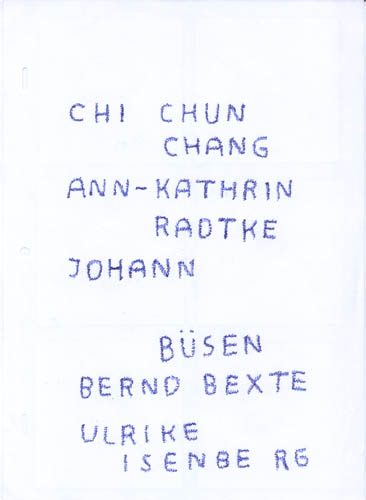 CHI CHUN
CHANG
ANN-KATHRIN
RADTKE
JOHANN
BÜSEN
BERND BEXTE
ULRIKE
ISENBE RG